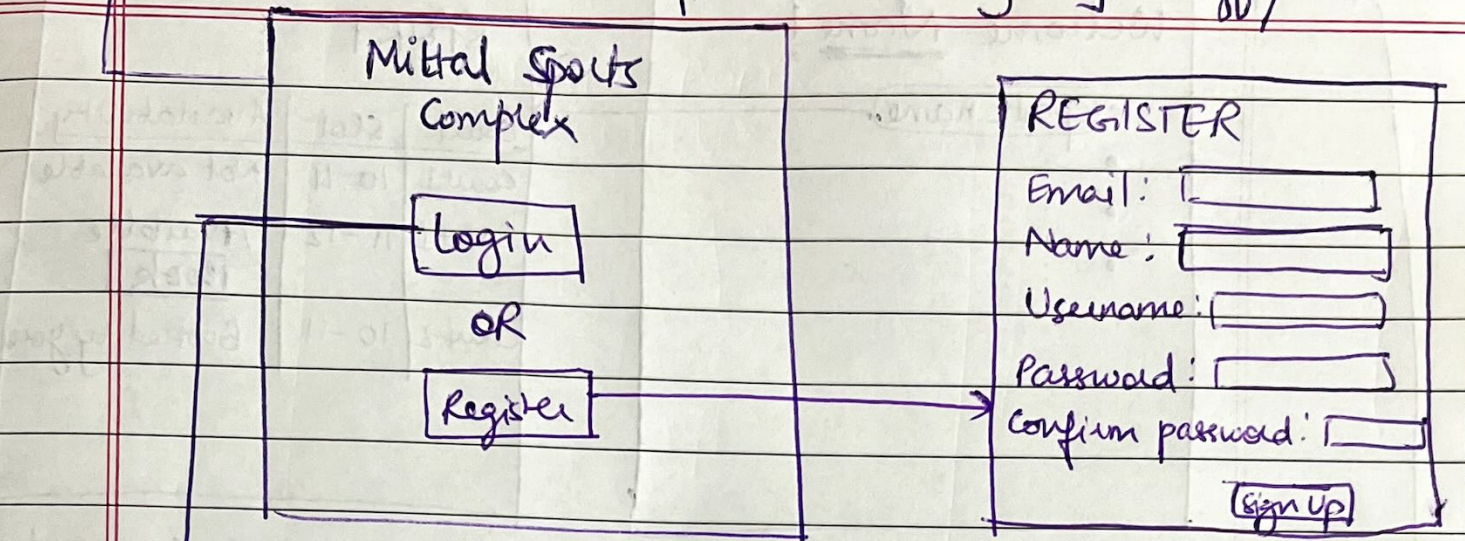 Mittal Sports
Complex
Login
OR
Register
REGISTER
Email:
Name:
Username:
Password:
Confirm password:
Sign Up